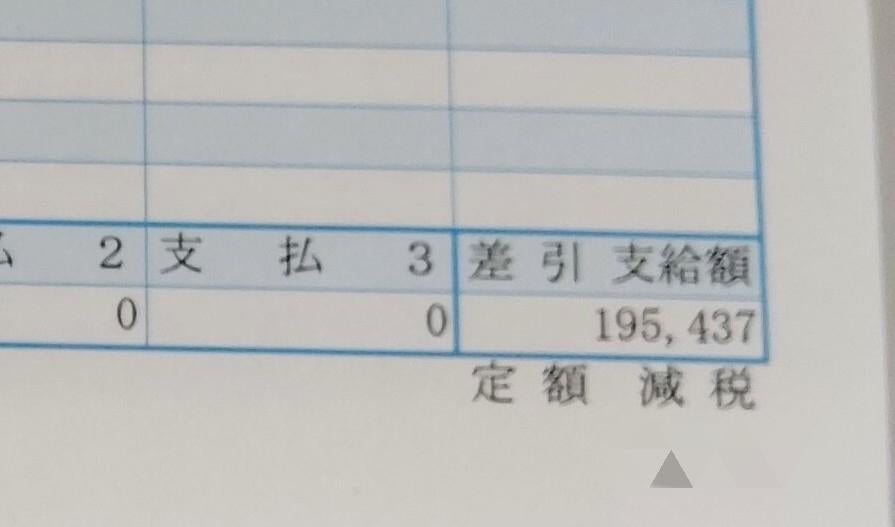 払 2 支 払 3 差 引 支給額
0 0 195,437
定 額 減 税
▲